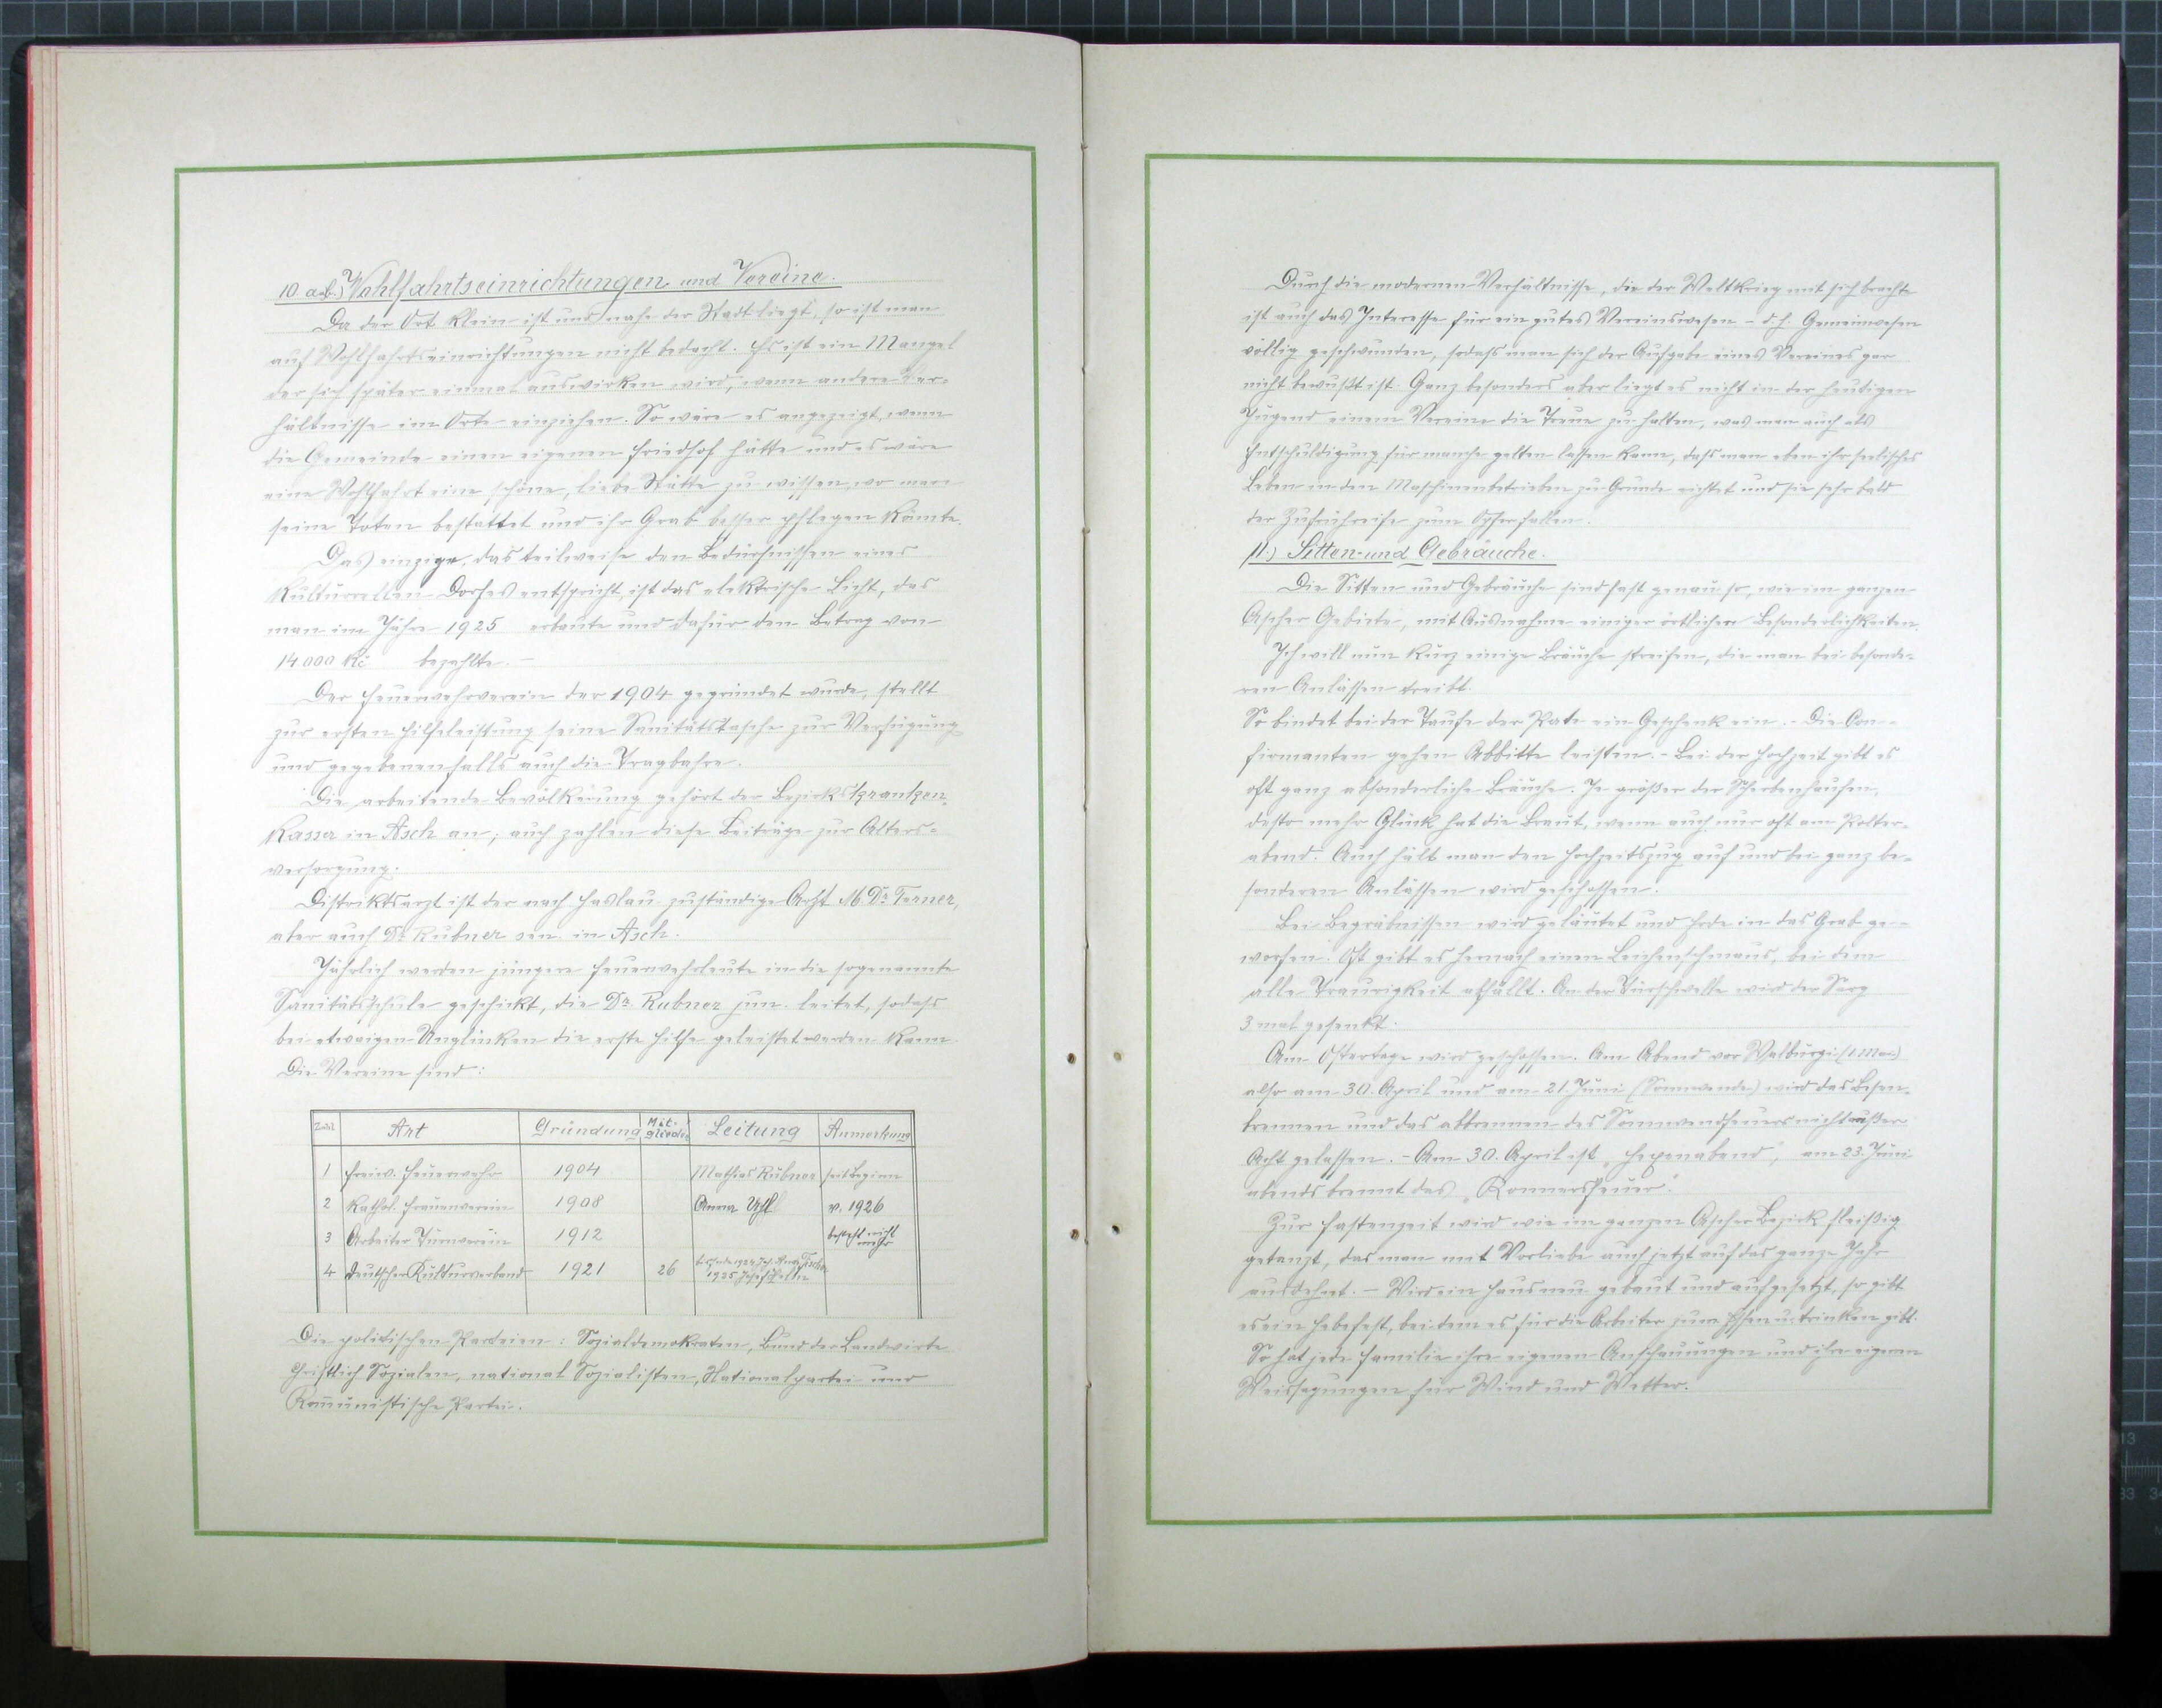 10. a.-b.) Wohlfahrtseinrichtungen und Vereine.
Da der Ort klein ist und nahe der Stadt liegt, so ist man
auf Wohlfahrtseinrichtungen nicht bedacht. Es ist ein Mangel
der sich später einmal auswirken wird, wenn andere Ver-
hältnisse im Orte einziehen. So wäre es angezeigt, wenn
die Gemeinde einen eigenen Friedhof hätte und es wäre
eine Wohlfahrt eine schöne, liebe Stätte zu wissen, wo man
seine Toten bestattet und ihr Grab besser pflegen könnte.
Das einzige, das teilweise den Bedürfnissen eines
kulturellen Dorfes entspricht, ist das elektrische Licht, das
man im Jahre 1925 erbaute und dafür den Betrag von
14 000 Kč bezahlte. -
Der Feuerwehrverein der 1904 gegründet wurde, stellt
zur ersten Hilfeleistung seine Sanitätstasche zur Verfügung
und gegebenenfalls auch die Tragbahre.
Die arbeitende Bevölkerung gehört der Bezirkskranken-
kassa in Asch an; auch zahlen diese Beiträge zur Alters-
versorgung.
Distriktsarzt ist der nach Haslau zuständige Arzt M. Dr. Terner,
aber auch Dr. Rubner sen. in Asch.
Jährlich werden jüngere Feuerwehrleute in die sogenannte
Sanitätsschule geschickt, die Dr. Rubner jun. leitet, sodass
bei etwaigen Unglücken die erste Hilfe geleistet werden kann
Die Vereine sind:
Zahl Art Gründung Mit-glieder Leitung Anmerkung
1 Freiw. Feuerwehr 1904 Mathias Rubner seit Beginn
2 Kathol. Frauenverein 1908 Anna Uhl v. 1926
3 Arbeiter Turnverein 1912 besteht nicht mehr
4 Deutscher Kulturverband 1921 26 bis Ende 1924 Joh. Fischer
1925 Josef
Die politischen Parteien: Sozialdemokraten, Bund der Landwirte
Christlich Sozialen, national Sozialisten, Nationalpartei und
Kom̄unistische Partei.
Durch die modernen Verhältnisse, die der Weltkrieg mit sich brachte
ist auch das Interesse für ein gutes Vereinswesen - d. h. Gemeinwesen
völlig geschwunden, sodass man sich der Aufgabe eines Vereines gar
nicht bewußt ist. Ganz besonders aber liegt es nicht in der heutigen
Jugend einem Vereine die Treue zu halten, was man auch als
Entschuldigung für manche gelten lassen kann, dass man eben ihr seelisches
Leben in den Maschinenbetrieben zu Grunde richtet und sie sehr bald
der Zufrühreife zum Opfer fallen.
11.) Sitten und Gebräuche.
Die Sitten und Gebräuche sind fast genau so, wie im ganzen
Ascher Gebiete, mit Ausnahme einiger örtlichen Besonderlichkeiten.
Ich will nun kurz einige Bräuche streifen, die man bei besonde-
ren Anlässen treibt.
So bindet bei der Taufe der Pate ein Geschenk ein. - Die Con-
firmanten gehen Abbitte leisten. - Bei der Hochzeit gibt es
oft ganz absonderliche Bräuche. Je größer der Scherbenhaufen,
desto mehr Glück hat die Braut, wenn auch nur oft am Polter-
abend. Auch hält man den Hochzeitszug auf und bei ganz be-
sonderen Anlässen wird geschossen.
Bei Begräbnissen wird geläutet und Erde in das Grab ge-
worfen. Oft gibt es hernach einen Leichenschmaus, bei dem
alle Traurigkeit abfällt. An der Türschwelle wird der Sarg
3 mal gesenkt.
Am Ostertage wird geschossen. Am Abend vor Walburgi (1. Mai)
also am 30. April und am 21. Juni (Sonnwende) wird das Besen-
brennen und das abbrennen des Sonnwendfeuers nicht außer
Acht gelassen. - Am 30. April ist „Hexenabend", am 23. Juni
abends brennt das „Konnersfeuer".
Zur Fastenzeit wird wie im ganzen Ascher Bezirk fleißig
getanzt, das man mit Vorliebe auch jetzt auf das ganze Jahr
ausdehnt. - Wird ein Haus neu gebaut und aufgesetzt, so gibt
es ein Hebefest, bei dem es für die Arbeiter zum Essen u. trinken gibt.
So hat jede Familie ihre eigenen Anschauungen und ihre eigenen
Weissagungen für Wind und Wetter.